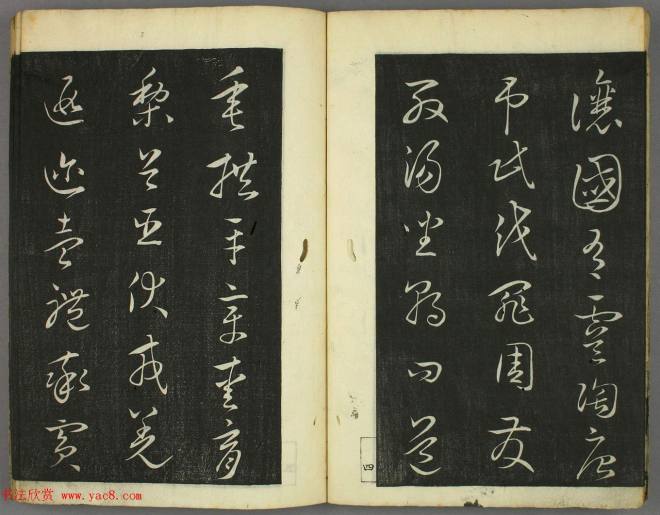 讓國有虞陶唐
弔民伐罪周發
殷湯坐朝問道
四
垂拱平章愛育
黎首臣伏戎羌
遐邇壹體率賓
书法欣赏 www.yac8.com